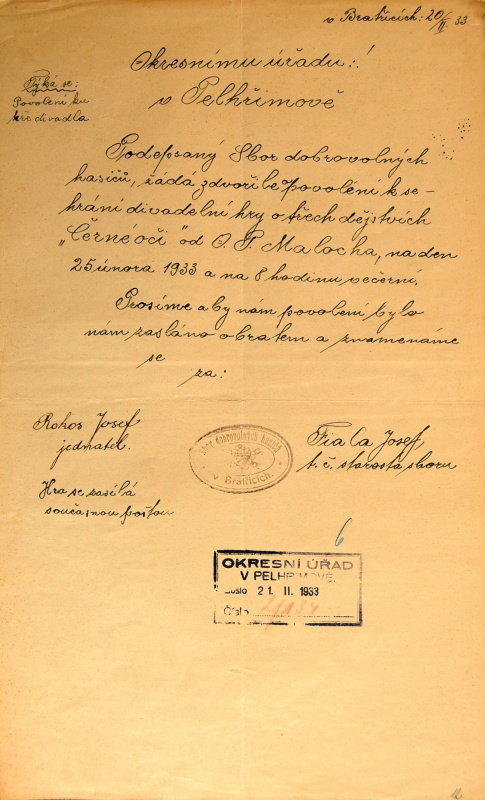 v Bratřicích: 20/II 33
Okresnímu úřadu:!
v Pelhřimově
Týká se:
Povolení ku
hře divadla
Podepsaný Sbor dobrovolných
hasičů, žádá zdvořile povolení k se-
hrání divadelní hry o třech dějstvích
„Černé oči" od O. P. Malocha, na den
25 února 1933 a na 8 hodinu večerní.
Prosíme aby nám povolení bylo
nám zasláno obratem a znamenáme
se
za:
Rohos Josef
jednatel.
Sbor dobrovolných hasičů
v Bratřicích.
Fiala Josef
t. č. starosta sboru
Hra se zasílá
současnou poštou
6
OKRESNÍ ÚŘAD
V PELHŘIMOVĚ.
Došlo 21. II. 1933
Číslo
12